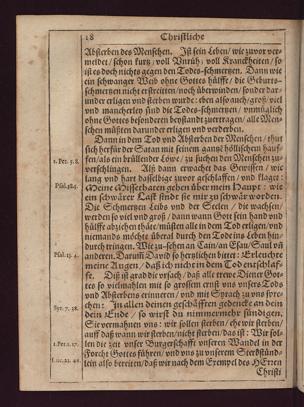 18 Christliche
Absterben des Menschen. Ist sein Leben / wie zuvor ver-
meldet / schon kurtz / voll Unruh / voll Kranckheiten / so
ist es doch nichts gegen den Todes-schmertzen. Dann wie
ein schwanger Weib ohne Gottes hülffe / die Geburts-
schmertzen nicht erstreiten / noch überwinden / sonder dar-
under erligen und sterben wurde: eben also auch / groß / viel
und mancherley sind die Todes-schmertzen / unmüglich
ohne Gottes besonderen beystand zuertragen / alle Men-
schen müßten darunder erligen und verderben.
Dann in dem Tod und Absterben der Menschen / thut
sich herfür der Satan mit seinem gantz höllischem hauf-
1. Pet. 5. 8. fen / als ein brüllender Löwe / zu suchen den Menschen zu-
verschlingen. Als dann erwachet das Gewissen / wie
lang und hart dasselbige zuvor geschlaffen / und klaget:
Meine Missethaten gehen über mein Haupt: wie
ein schwärer Last sinde sie mir zu schwär worden.
Die Schmertzen Leibs und der Seelen / die wachsen /
werden so viel und groß / dann wann Gott sein hand und
hülffe abziehen thäte / müßten alle in dem Tod erligen / und
niemands möchte überal durch den Tod eins Leben hin-
durch tringen. Wie zu-sehen an Cain / an Esau / Saul vn
Psal. 13. 4. anderen. Darumb David so hertzlichen bittet: Erleuchte
meine Augen / daß ich nicht in dem Tod entschlaf-
fe. Diß ist grad die ursach / daß alle trewe Diener Got-
tes so vielmahlen mit so grossem ernst vns unsers Tods
und Absterbens erinneren / und mit Syrach zu uns spre-
Syr. 7. 38. chen: In allen deinen geschäfften gedencke an dein
dein Ende / so wirst du nimmermehr sündigen.
Sie vermahnen vns: wir sollen sterben / ehe wir sterben /
auff daß wann wir sterben / nicht sterben / das ist: Wir sol-
1. Pet. 1. 17. len die zeit unser Burgerschafft unseren Wandel in der
Forcht Gottes führen / und vns zu unserem Sterbstünd-
lein also bereiten / daß wir nach dem Exempel des HErren
Christi